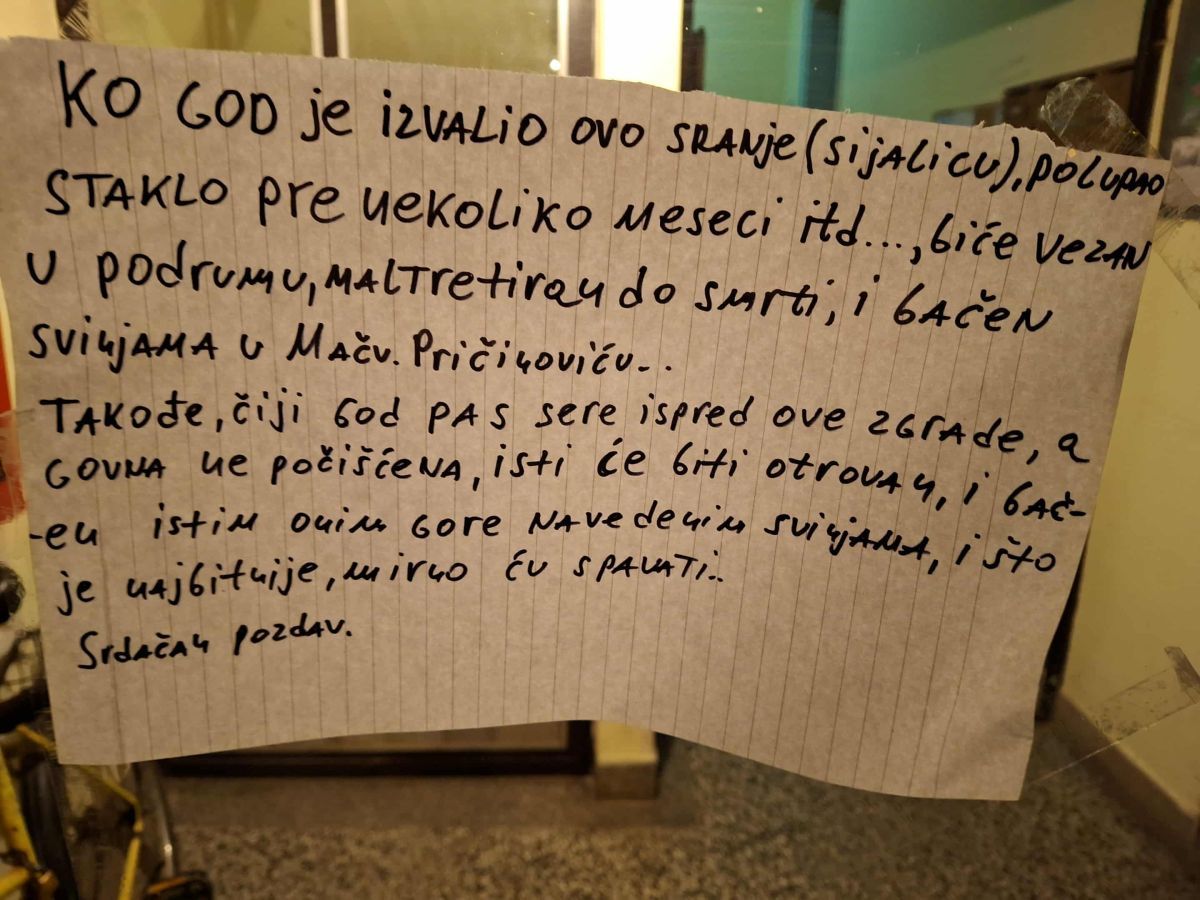 KO GOD je IZVALIO OVO SRANje (SijALiCU), POLUPAO
STAKLO pre nekoliko meseci itd..., biće VEZAN
U podrumu, MALTretiran do smrti, i bAčeN
svinjAMA U MAčv. Pričinoviću..
TAKOđe, čiji God PAS sere ispred ove ZGRADe, a
GOVNA ne počišćeNA, isti će biti otrovan, i bAč-
-en istim onim GORe NAvedenim svinjAMA, i što
je najbitnije, mirno ću SPAVATi..
SrdAčAn pozdAv.